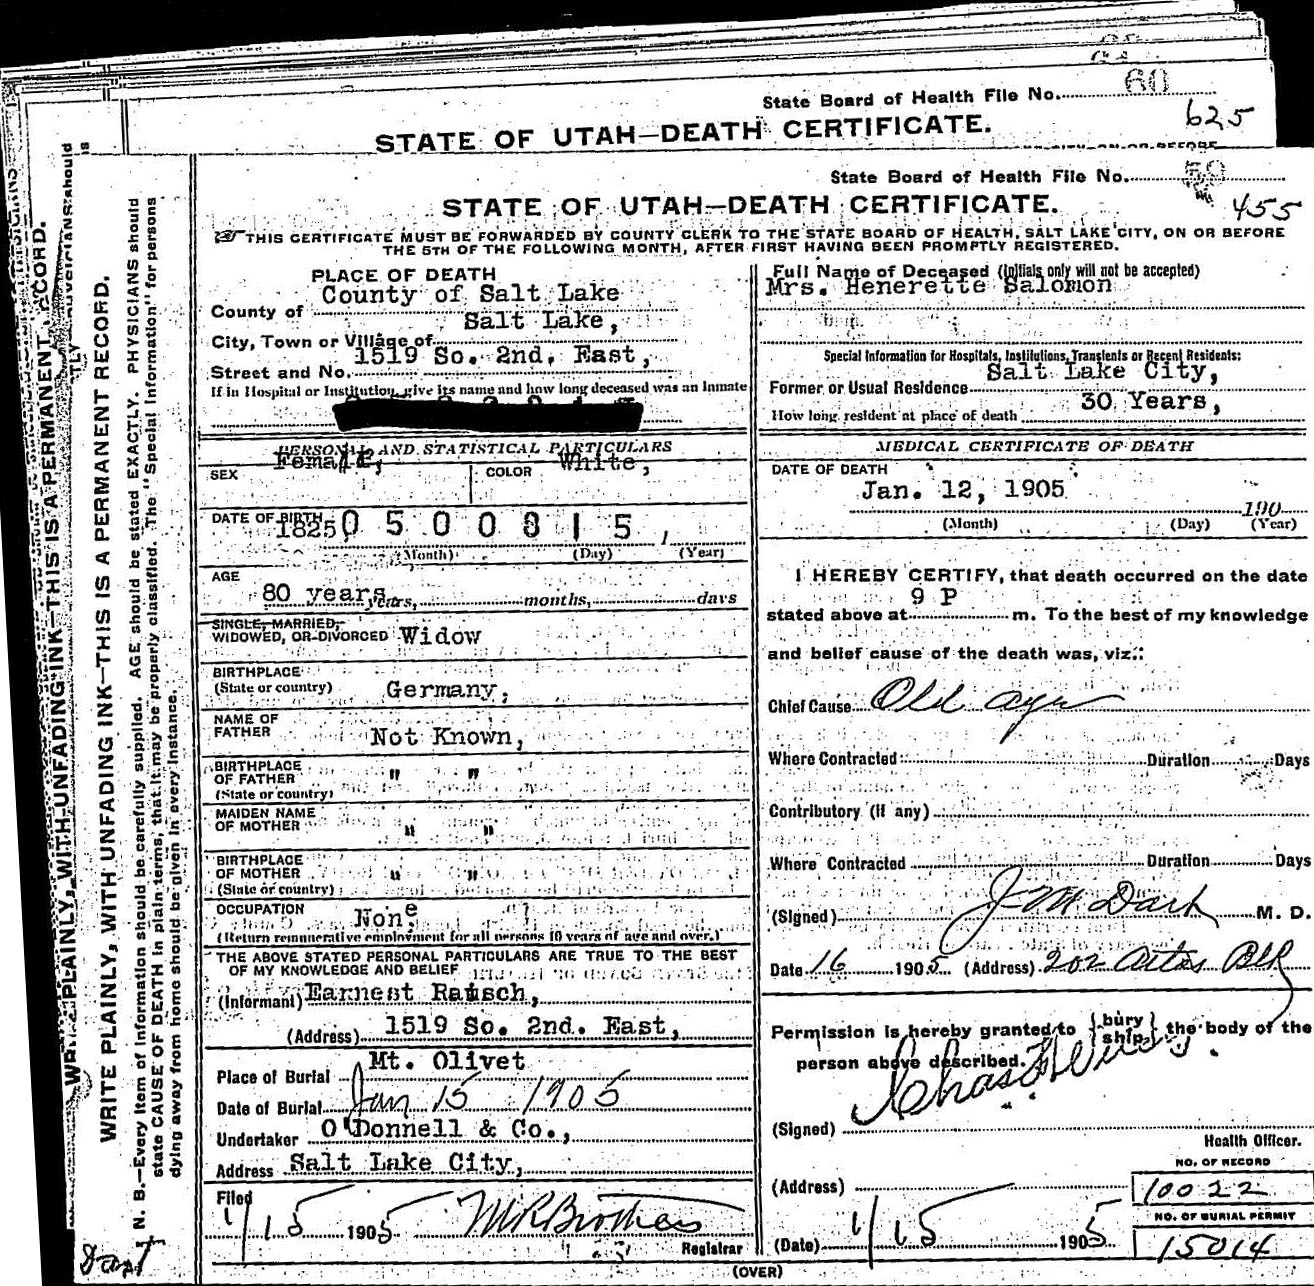 State Board of Health File No. 60
625
STATE OF UTAH—DEATH CERTIFICATE.
State Board of Health File No. 50
455
STATE OF UTAH—DEATH CERTIFICATE.
THIS CERTIFICATE MUST BE FORWARDED BY COUNTY CLERK TO THE STATE BOARD OF HEALTH, SALT LAKE CITY, ON OR BEFORE
THE 5TH OF THE FOLLOWING MONTH, AFTER FIRST HAVING BEEN PROMPTLY REGISTERED.
WRITE PLAINLY, WITH UNFADING INK—THIS IS A PERMANENT RECORD.
N. B.—Every item of information should be carefully supplied. AGE should be stated EXACTLY. PHYSICIANS should
state CAUSE OF DEATH in plain terms, that it may be properly classified. The "Special Information" for persons
dying away from home should be given in every instance.
PLACE OF DEATH
County of County of Salt Lake
City, Town or Village of Salt Lake,
Street and No. 1519 So. 2nd. East,
If in Hospital or Institution, give its name and how long deceased was an Inmate
PERSONAL AND STATISTICAL PARTICULARS
SEX Female, COLOR White,
DATE OF BIRTH 1825 0500815,
(Month) (Day) (Year)
AGE
80 years years, months, days
SINGLE, MARRIED,
WIDOWED, OR DIVORCED Widow
BIRTHPLACE
(State or country) Germany,
NAME OF
FATHER Not Known,
BIRTHPLACE
OF FATHER " "
(State or country)
MAIDEN NAME
OF MOTHER " "
BIRTHPLACE
OF MOTHER " "
(State or country)
OCCUPATION None,
(Return remunerative employment for all persons 16 years of age and over.)
THE ABOVE STATED PERSONAL PARTICULARS ARE TRUE TO THE BEST
OF MY KNOWLEDGE AND BELIEF
(Informant) Earnest Raisch,
(Address) 1519 So. 2nd. East,
Place of Burial Mt. Olivet
Date of Burial Jan 15 1905
Undertaker O'Donnell & Co.,
Address Salt Lake City,
Filed
1/15 1905 M R Brothers
Registrar
Full Name of Deceased (Initials only will not be accepted)
Mrs. Henerette Salomon
Special Information for Hospitals, Institutions, Transients or Recent Residents:
Former or Usual Residence Salt Lake City,
How long resident at place of death 30 Years,
MEDICAL CERTIFICATE OF DEATH
DATE OF DEATH
Jan. 12, 1905
190
(Month) (Day) (Year)
I HEREBY CERTIFY, that death occurred on the date
stated above at 9 P m. To the best of my knowledge
and belief cause of the death was, viz.:
Chief Cause Old age
Where Contracted Duration Days
Contributory (if any)
Where Contracted Duration Days
(Signed) J M Dart M. D.
Date 16 1905 (Address) 202 Blk
Permission is hereby granted to {bury ship} the body of the
person above described.
(Signed) Chas
Health Officer.
NO. OF RECORD
(Address) 10022
NO. OF BURIAL PERMIT
(Date) 1/15 1905 15014
(OVER)
Dart